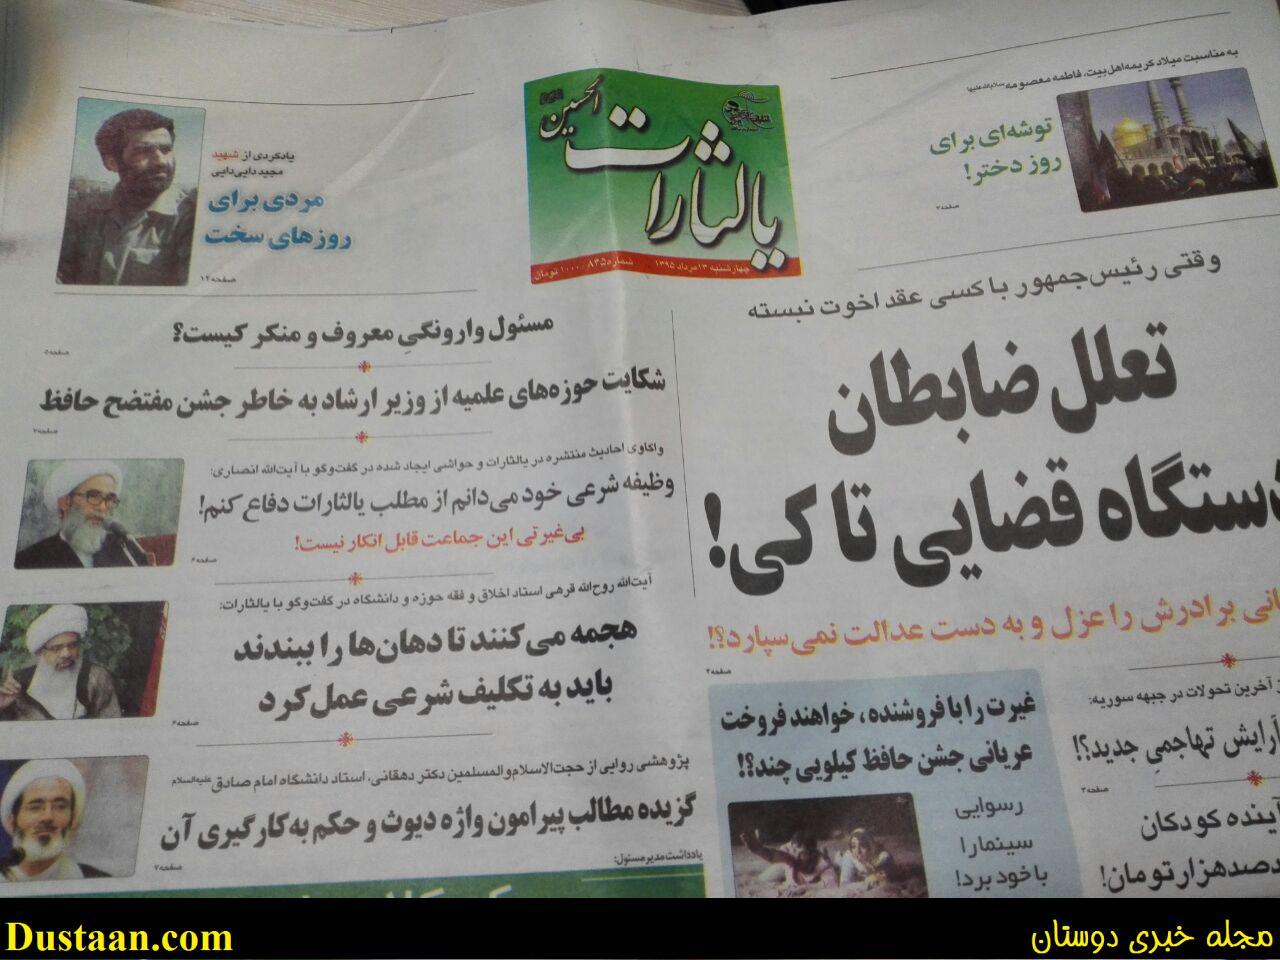 به مناسبت میلاد کریمه اهل بیت، فاطمه معصومه سلام‌الله‌علیها
توشه‌ای برای
روز دختر!
صفحه۲
یالثارات
الحسین
چهارشنبه ۱۳ مرداد ۱۳۹۵ شماره ۸۴۵ ۱۰۰۰ تومان
یادکردی از شهید
مجید دایی‌دایی
مردی برای
روزهای سخت
صفحه۱۲
وقتی رئیس‌جمهور با کسی عقد اخوت نبسته
تعلل ضابطان
دستگاه قضایی تا کی!
برادرش را عزل و به دست عدالت نمی‌سپارد؟!
صفحه۴
از آخرین تحولات در جبهه سوریه:
آرایش تهاجمیِ جدید؟!
صفحه۳
آینده کودکان
صدهزار تومان!
غیرت را با فروشنده، خواهند فروخت
عریانی جشن حافظ کیلویی چند؟!
رسوایی
سینما را
با خود برد!
مسئول وارونگیِ معروف و منکر کیست؟
صفحه۵
شکایت حوزه‌های علمیه از وزیر ارشاد به خاطر جشن مفتضح حافظ
صفحه۷
واکاوی احادیث منتشره در یالثارات و حواشی ایجاد شده در گفت‌وگو با آیت‌الله انصاری:
وظیفه شرعی خود می‌دانم از مطلب یالثارات دفاع کنم!
بی‌غیرتی این جماعت قابل انکار نیست!
صفحه۶
آیت‌الله روح‌الله قرهی استاد اخلاق و فقه حوزه و دانشگاه در گفت‌وگو با یالثارات:
هجمه می‌کنند تا دهان‌ها را ببندند
باید به تکلیف شرعی عمل کرد
صفحه۶
پژوهشی روایی از حجت‌الاسلام‌والمسلمین دکتر دهقانی، استاد دانشگاه امام صادق علیه‌السلام
گزیده مطالب پیرامون واژه دیوث و حکم به‌کارگیری آن
صفحه۷
یادداشت مدیرمسئول:
Dustaan.com
مجله خبری دوستان